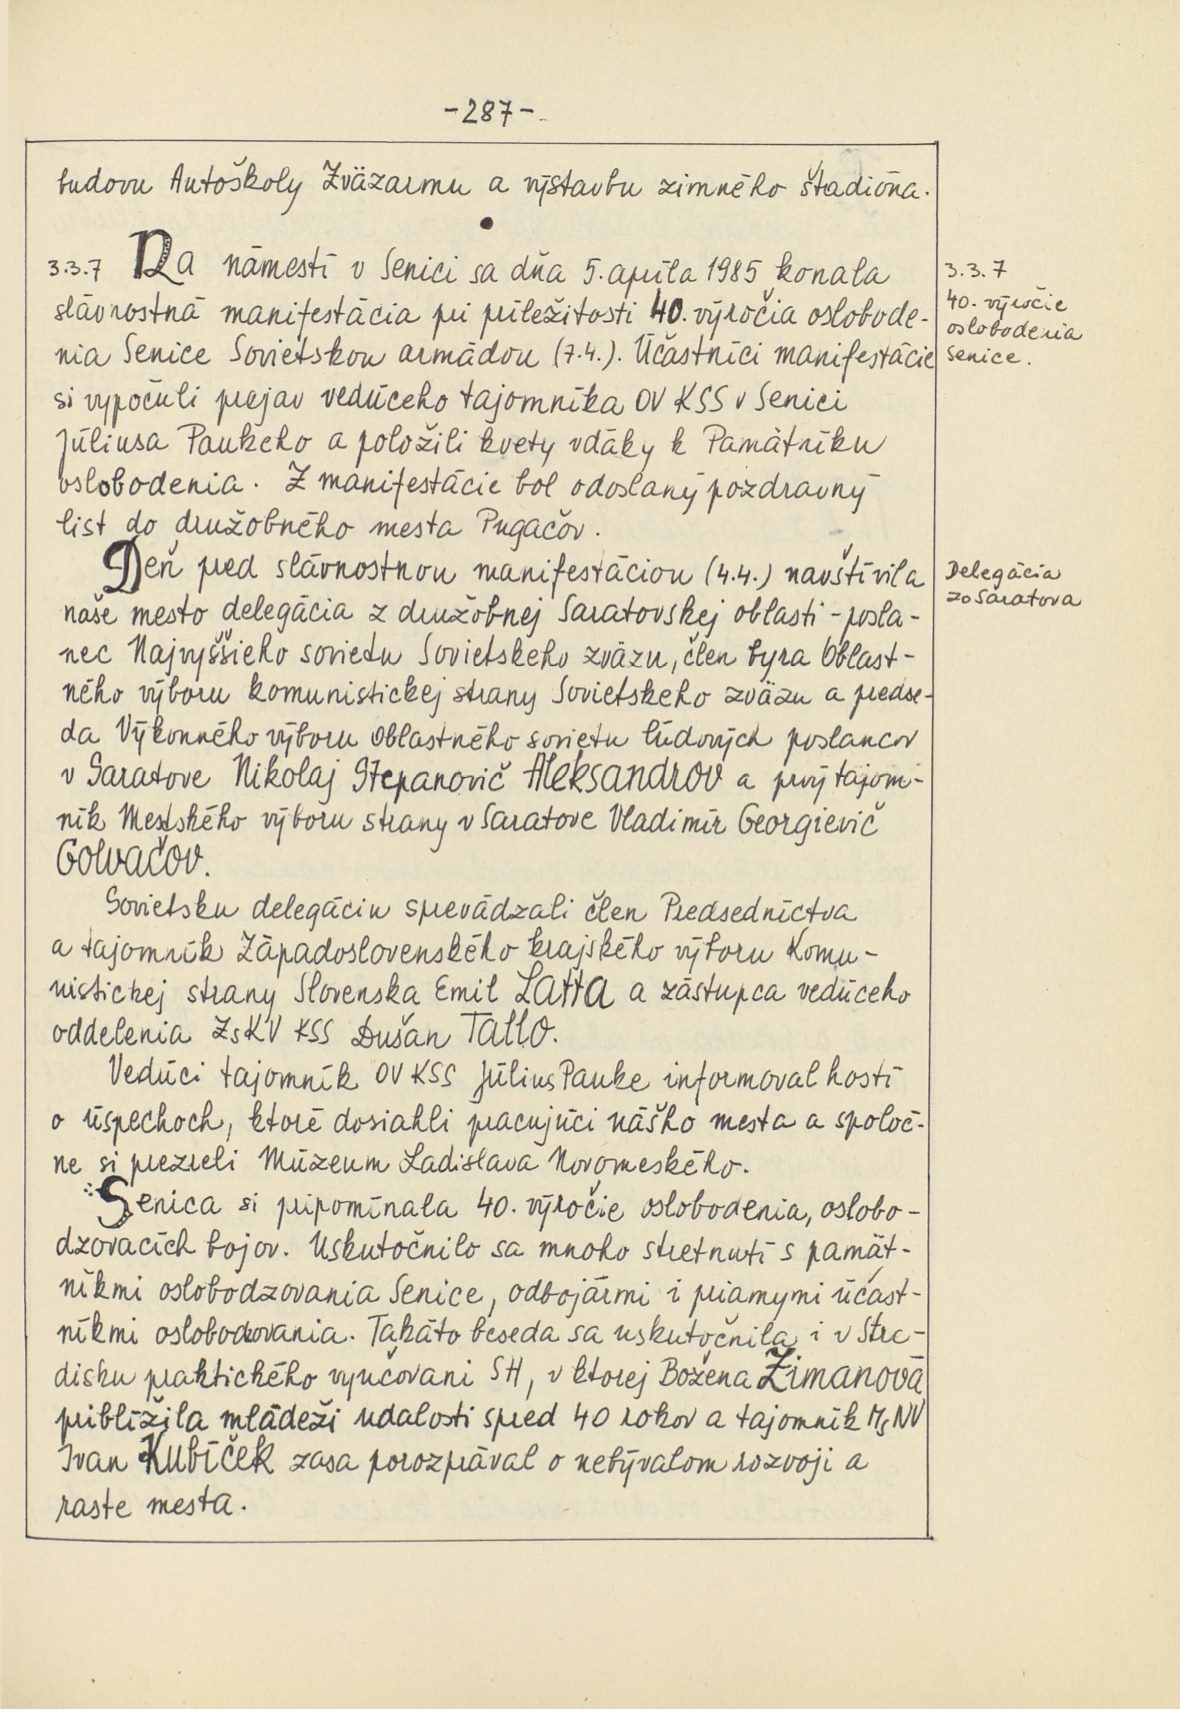 -287-
budovu Autoškoly Zväzarmu a výstavbu zimného štadióna.
3.3.7 Na námestí v Senici sa dňa 5. apríla 1985 konala
slávnostná manifestácia pri príležitosti 40. výročia oslobode-
nia Senice Sovietskou armádou (7.4.). Účastníci manifestácie
si vypočuli prejav vedúceho tajomníka OV KSS v Senici
Júliusa Paukeho a položili kvety vďaky k Pamätníku
oslobodenia. Z manifestácie bol odoslaný pozdravný
list do družobného mesta Pugačov.
3.3.7
40. výročie
oslobodenia
Senice.
Deň pred slávnostnou manifestáciou (4.4.) navštívila
naše mesto delegácia z družobnej Saratovskej oblasti - posla-
nec Najvyššieho sovietu Sovietskeho zväzu, člen byra Oblast-
ného výboru komunistickej strany Sovietskeho zväzu a predse-
da Výkonného výboru Oblastného sovietu ľudových poslancov
v Saratove Nikolaj Stepanovič Aleksandrov a prvý tajom-
ník Mestského výboru strany v Saratove Vladimír Georgievič
Golvačov.
Delegácia
zo Saratova
Sovietsku delegáciu sprevádzali člen Predsedníctva
a tajomník Západoslovenského krajského výboru Komu-
nistickej strany Slovenska Emil Latta a zástupca vedúceho
oddelenia ZsKV KSS Dušan Tallo.
Vedúci tajomník OV KSS Július Pauke informoval hostí
o úspechoch, ktoré dosiahli pracujúci nášho mesta a spoloč-
ne si prezreli Múzeum Ladislava Novomeského.
Senica si pripomínala 40. výročie oslobodenia, oslobo-
dzovacích bojov. Uskutočnilo sa mnoho stretnutí s pamät-
níkmi oslobodzovania Senice, odbojármi i priamymi účast-
níkmi oslobodzovania. Takáto beseda sa uskutočnila i v Stre-
disku praktického vyučovani SH, v ktorej Božena Zimanová
priblížila mládeži udalosti spred 40 rokov a tajomník MsNV
Ivan Kubíček zasa porozprával o nebývalom rozvoji a
raste mesta.